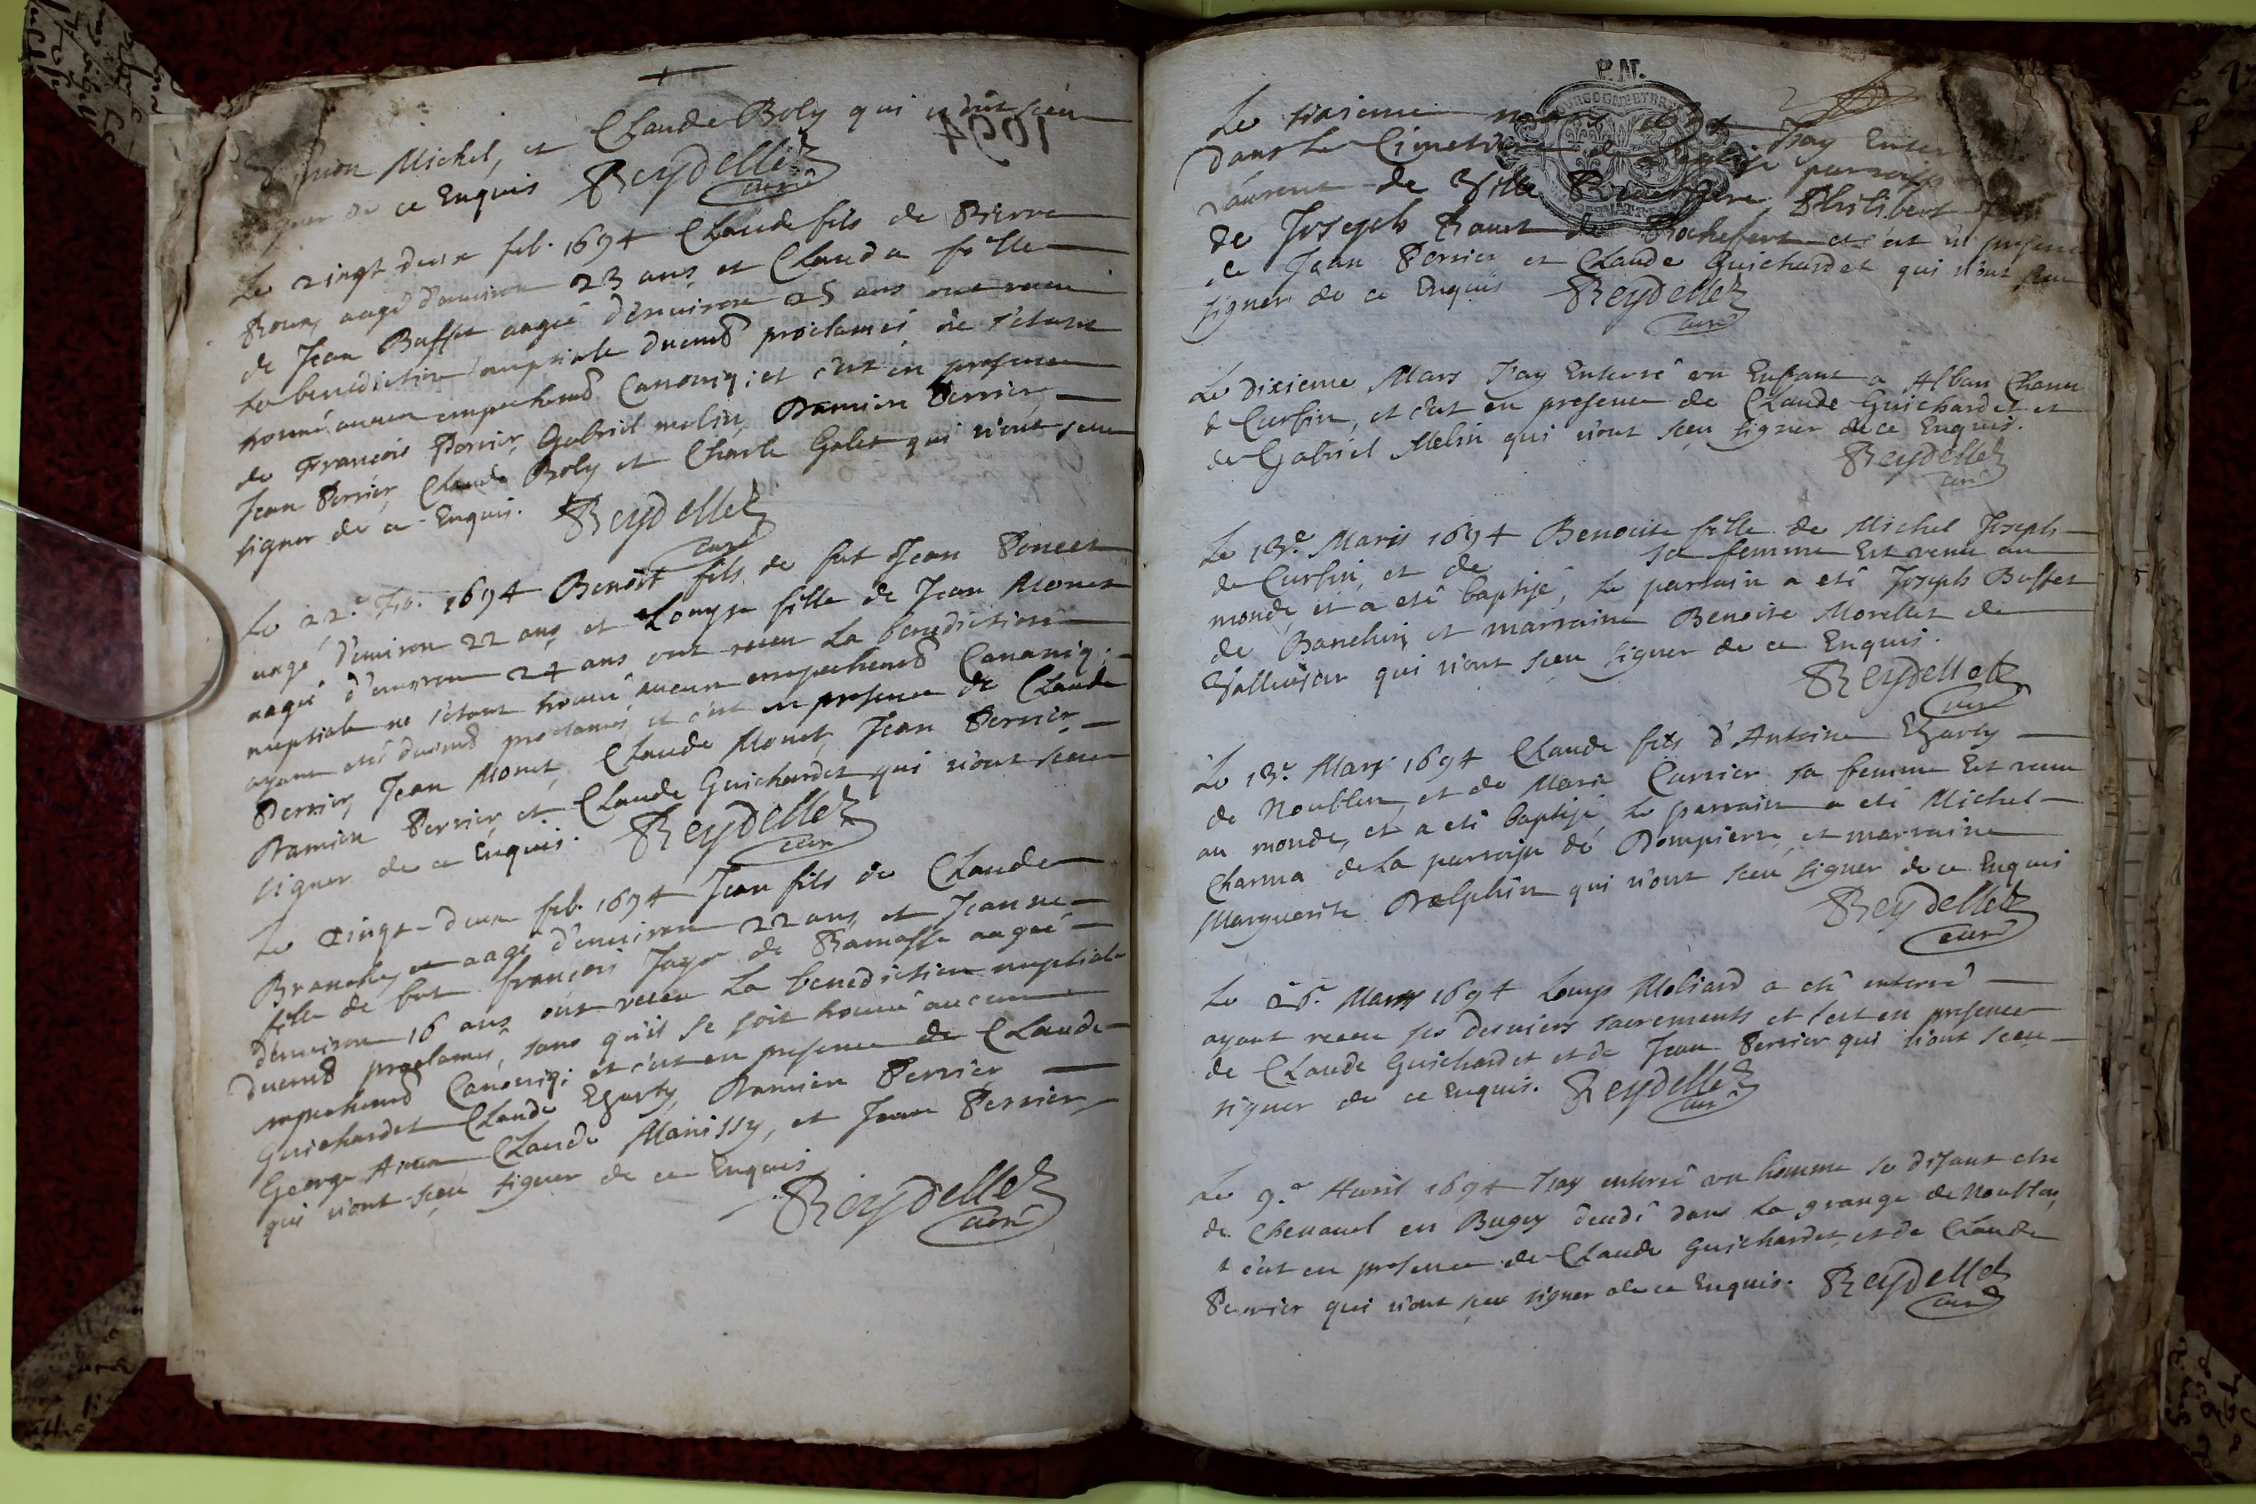 Simon Michel, et Claude Boly qui n'ont sceu
signer de ce Enquis Reydellet
curé
1694
Le vingt deux feb. 1694 Claude fils de Pierre
Roux, aagé d'environ 23 ans et Clauda fille
de Jean Buffet aagée d'environ 25 ans ont receu
la benediction nuptiale duemt proclamés ne s'etant
trouvé aucun empechemt Canoniq; et c'est en presence
de François Perrier, Gabriel melin, Damien Perrier
Jean Perrier Claude Boly et Charle Galet qui n'ont sceu
signer de ce Enquis. Reydellet
curé
Le 22e feb. 1694 Benoit fils de fut Jean Poncet
aagé d'environ 22 ans et Louyse fille de Jean Monet
aagée d'environ 24 ans ont receu la benediction
nuptiale ne s'etant trouvé aucun empechemt Canoniq;
ayant eté duemt proclamés, et c'est en presence de Claude
Perrier, Jean Monet, Claude Monet, Jean Perrier
Damien Perrier, et Claude Guichardet qui n'ont sceu
signer de ce Enquis. Reydellet
curé
Le vingt-deux feb. 1694 Jean fils de Claude
aagé d'environ 22 ans, et Jeanne
fille de fut françois Jayr de Ramasse aagée
d'environ 16 ans ont receu la benediction nuptiale
duemt proclamés, sans qu'il se soit trouvé aucun
empechemt Canoniq; et c'est en presence de Claude
Guichardet Claude Damien Perrier
George Claude Manissy, et Jean Perrier
qui n'ont sceu signer de ce Enquis
Reydellet
curé
P.N.
Le sixieme mars 1694 J'ay Enter
dans le Cimetiere de l'eglise parroiss
Laurent de Ville Philibert
de Joseph de Rochefort et c'est en presence
de Jean Perrier et Claude Guichardet qui n'ont sceu
signer de ce Enquis Reydellet
curé
Le Dixieme Mars J'ay Enterré un Enfant a Alban
de Curfin, et c'est en presence de Claude Guichardet et
de Gabriel Melin qui n'ont sceu signer de ce Enquis.
Reydellet
curé
Le 13e Mars 1694 Benoite fille de Michel Joseph
de Curfin, et de sa femme Est venu au
monde, et a eté baptisé, le parrain a eté Joseph Buffet
de Banchin et marraine Benoite Morellet de
qui n'ont sceu signer de ce Enquis.
Reydellet
curé
Le 13e Mars 1694 Claude fils d'Antoine
de Noublen, et de Marie Carrier sa femme Est venu
au monde, et a eté baptisé, le parrain a eté Michel
Charma de la parroisse de Dompierre, et marraine
Marguerite Dalphin qui n'ont sceu signer de ce Enquis
Reydellet
curé
Le 26e Mars 1694 Louys Moliard a eté enterré
ayant receu ses derniers sacrements et c'est en presence
de Claude Guichardet et de Jean Perrier qui n'ont sceu
signer de ce Enquis. Reydellet
curé
Le 9e Avril 1694 J'ay enterré un homme se disant etre
de Chenavel en Bugey decedé dans la grange de Noublen,
et c'est en presence de Claude Guichardet, et de Claude
Perrier qui n'ont sceu signer de ce Enquis. Reydellet
curé